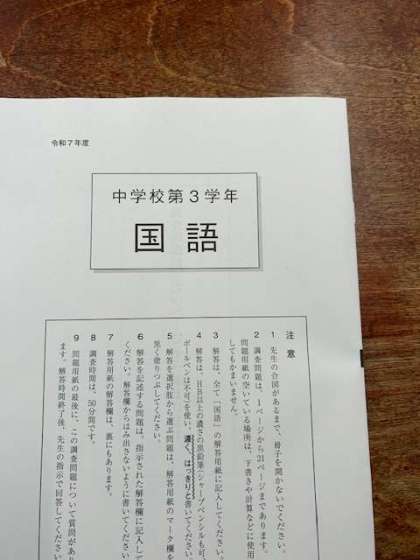 令和7年度
中学校第3学年
国語
注意
1 先生の合図があるまで、冊子を開かないでください。
2 調査問題は、1ページから21ページまであります。
問題用紙の空いている場所は、下書きや計算などに使用
してもかまいません。
3 解答は、全て「国語」の解答用紙に記入してください。
4 解答は、HB以上の濃さの黒鉛筆(シャープペンシルも可、
ボールペンは不可)を使い、濃く、はっきりと書いてください
5 解答を選択肢から選ぶ問題は、解答用紙のマーク欄を
黒く塗りつぶしてください。
6 解答を記述する問題は、指示された解答欄に記入して
ください。解答欄からはみ出さないように書いてください
7 解答用紙の解答欄は、裏にもあります。
8 調査時間は、50分間です。
9 問題用紙の最後に、この調査問題について質問があ
ます。解答時間終了後、先生の指示で回答してください